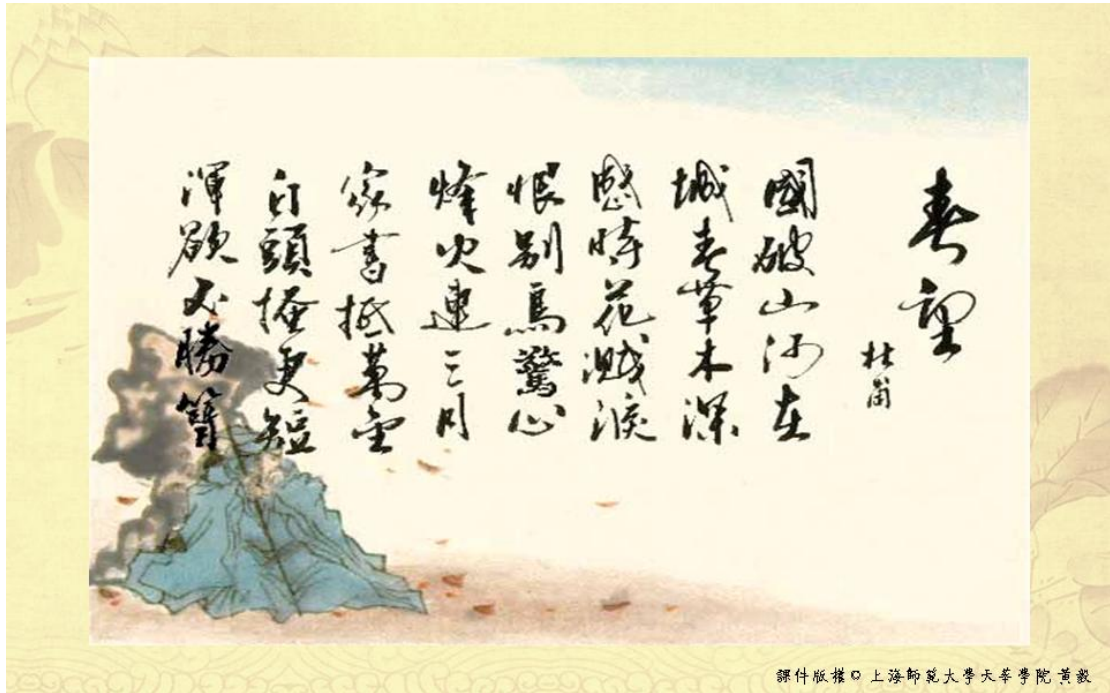 春望
杜甫
國破山河在
城春草木深
感時花濺淚
恨別鳥驚心
烽火連三月
家書抵萬金
白頭搔更短
渾欲不勝簪
課件版權© 上海師範大學天華學院 黃毅